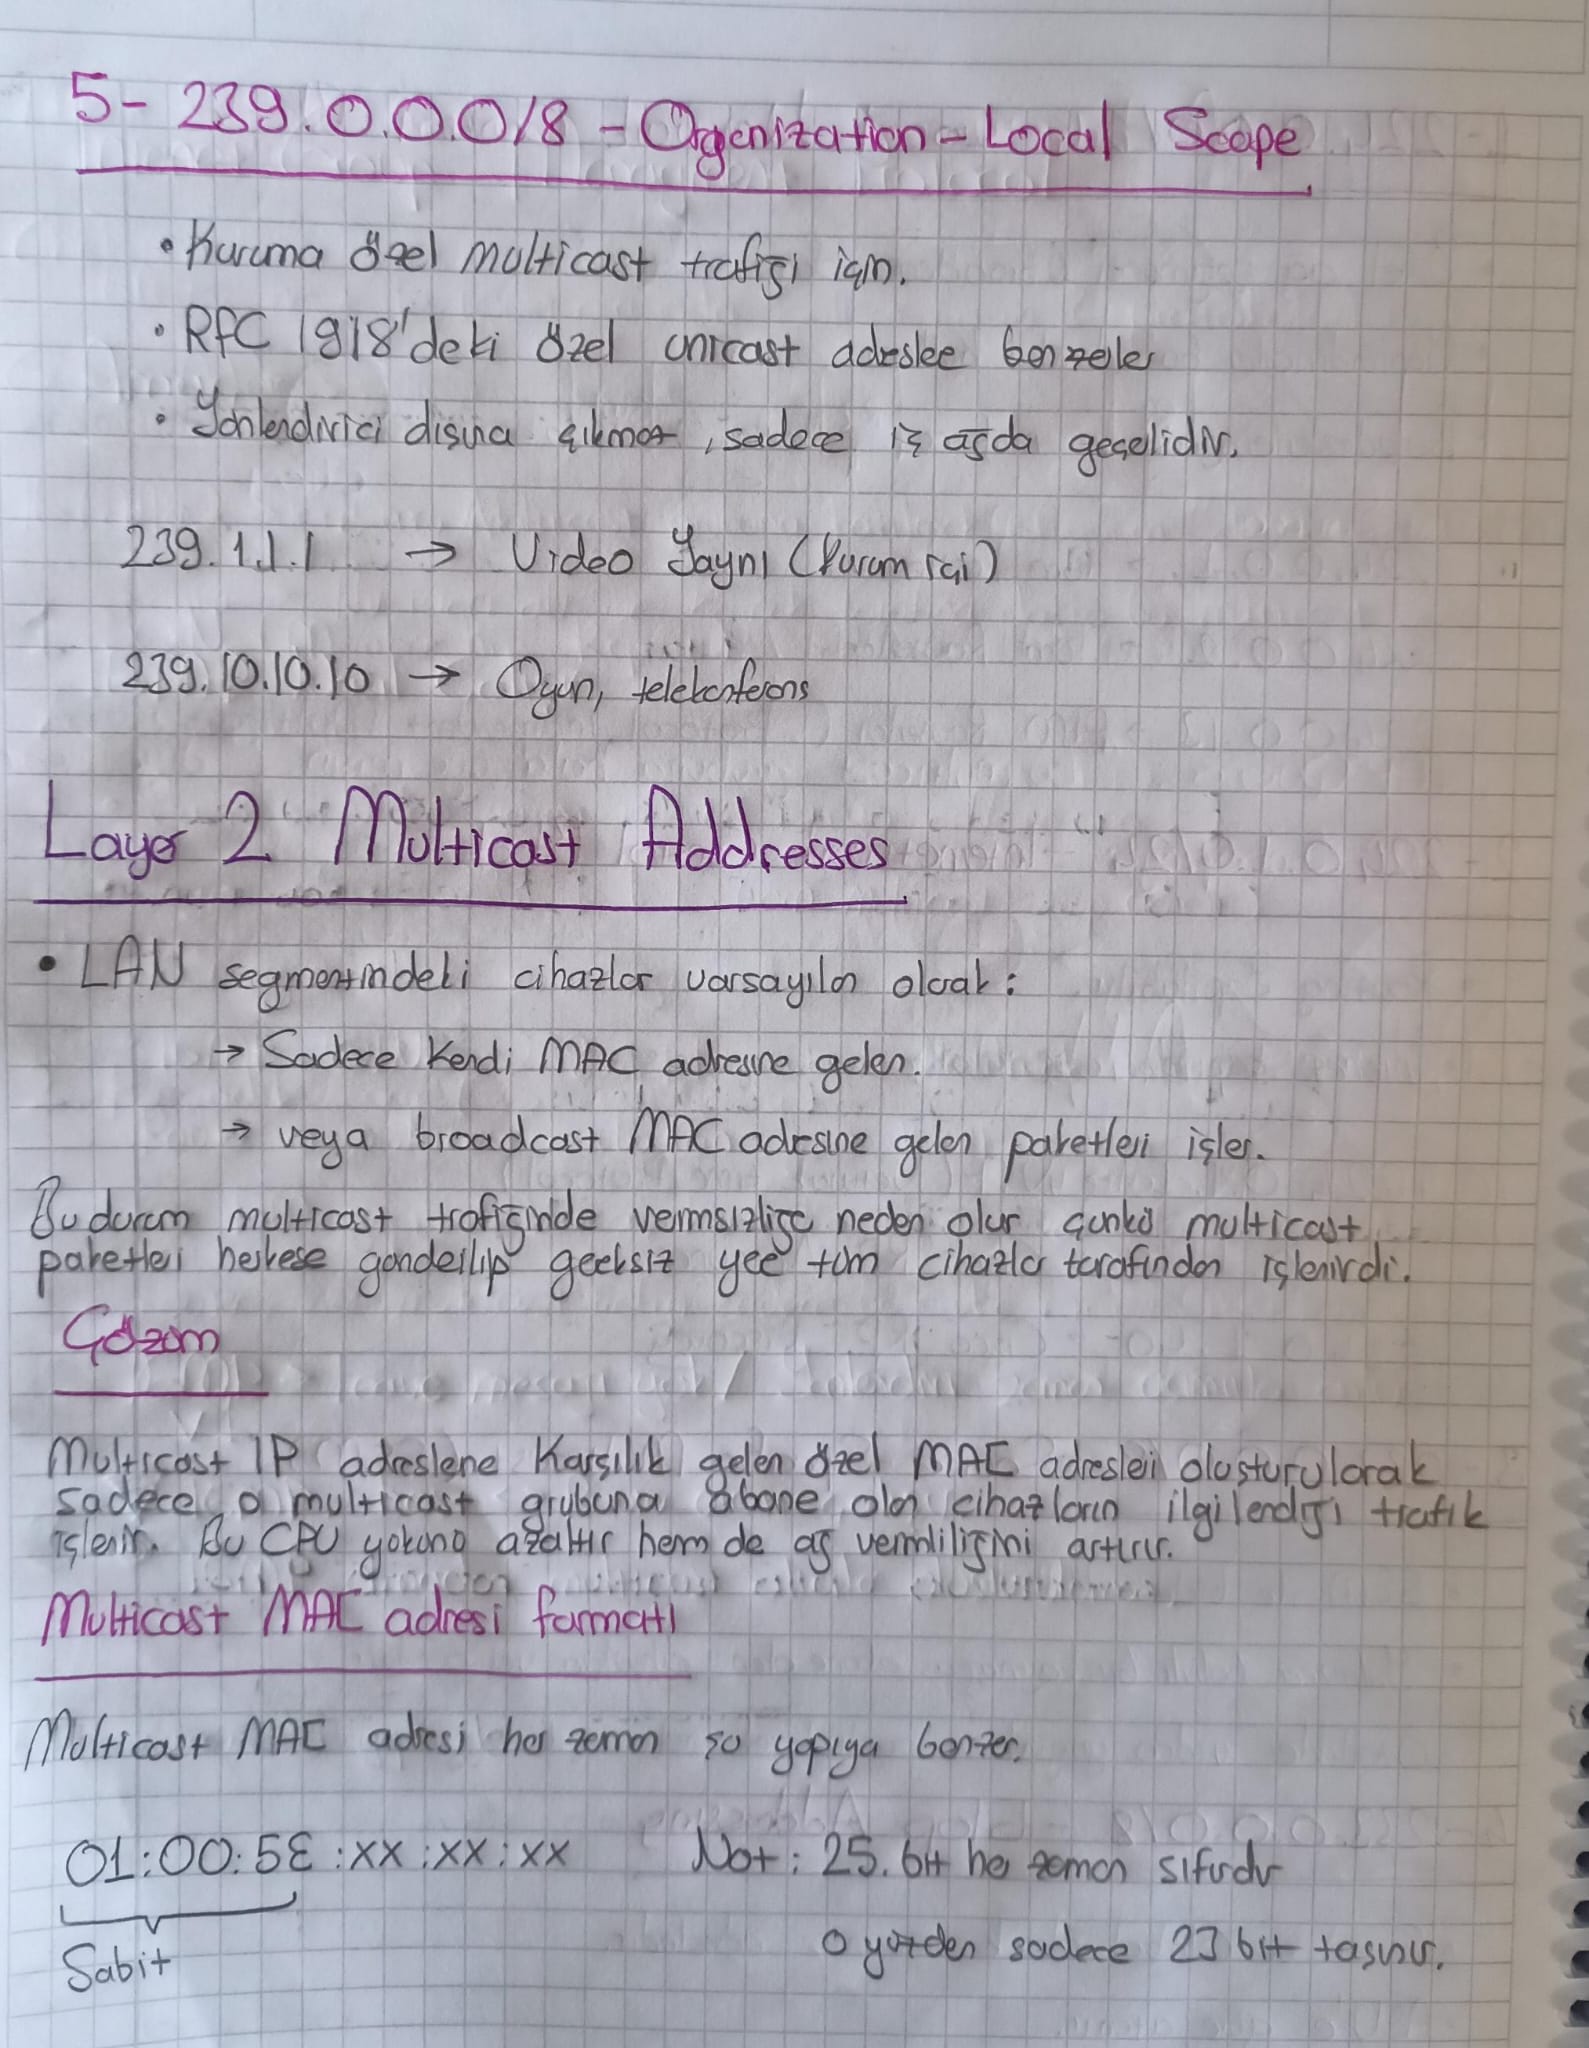 5- 239.0.0.0/8 - Organization - Local Scope
• Kuruma özel multicast trafiği için.
• RFC 1918'deki özel unicast adreslere benzerler
• Yönlendirici dışına çıkmaz, sadece iç ağda geçelidir.
239.1.1.1 → Video Yayını (Kurum içi)
239.10.10.10 → Oyun, telekonferans
Layer 2 Multicast Addresses
• LAN segmentindeki cihazlar varsayılan olarak:
→ Sadece kendi MAC adresine gelen.
→ veya broadcast MAC adresine gelen paketleri işler.
Bu durum multicast trafiğinde verimsizliğe neden olur çünkü multicast
paketleri herkese gönderilip gereksiz yere tüm cihazlar tarafından işlenirdi.
Çözüm
Multicast IP adreslerine karşılık gelen özel MAC adresleri oluşturularak
sadece o multicast grubuna abone olan cihazların ilgilendiği trafik
işlenir. Bu CPU yükünü azaltır hem de ağ verimliliğini artırır.
Multicast MAC adresi formatı
Multicast MAC adresi her zaman şu yapıya benzer.
01:00:5E:xx:xx:xx Not: 25. bit her zaman sıfırdır
Sabit o yüzden sadece 23 bit taşınır.